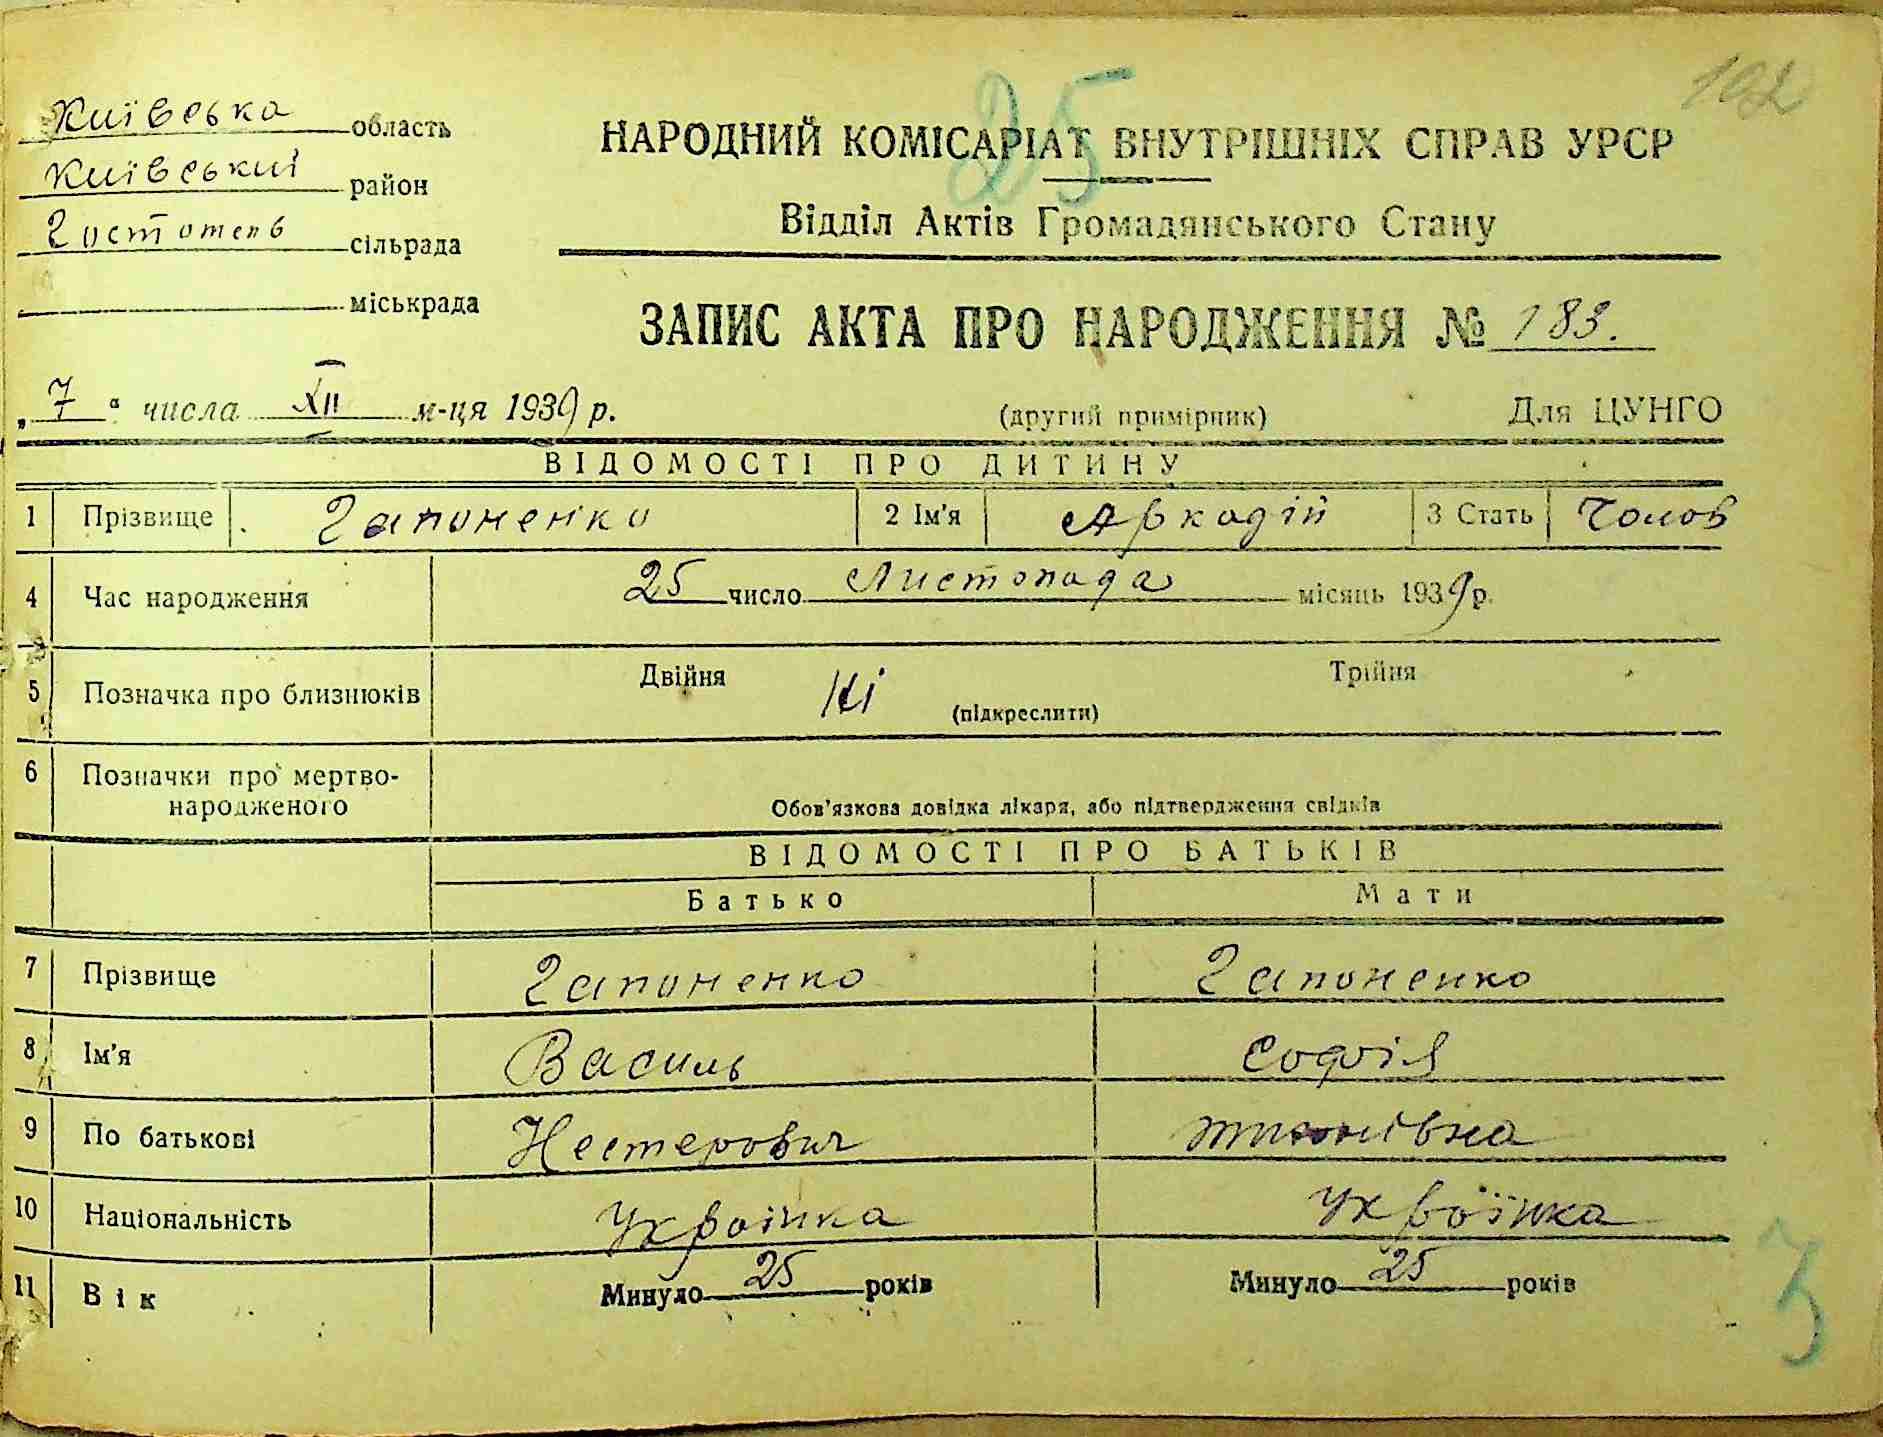 102
25
Київська область
Київський район
Гостомель сільрада
міськрада
НАРОДНИЙ КОМІСАРІАТ ВНУТРІШНІХ СПРАВ УРСР
Відділ Актів Громадянського Стану
ЗАПИС АКТА ПРО НАРОДЖЕННЯ № 183.
„7“ числа XII м-ця 1939 р. (другий примірник) Для ЦУНГО
ВІДОМОСТІ ПРО ДИТИНУ
1 Прізвище Гапоненко 2 Ім'я Аркадій 3 Стать Чолов
4 Час народження 25 число Листопада місяць 1939 р.
5 Позначка про близнюків Двійня Ні (підкреслити) Трійня
6 Позначки про мертво-
народженого Обов'язкова довідка лікаря, або підтвердження свідків
ВІДОМОСТІ ПРО БАТЬКІВ
Батько Мати
7 Прізвище Гапоненко Гапоненко
8 Ім'я Василь Софія
9 По батькові Нестерович
10 Національність Українка Українка
11 Вік Минуло 25 років Минуло 25 років